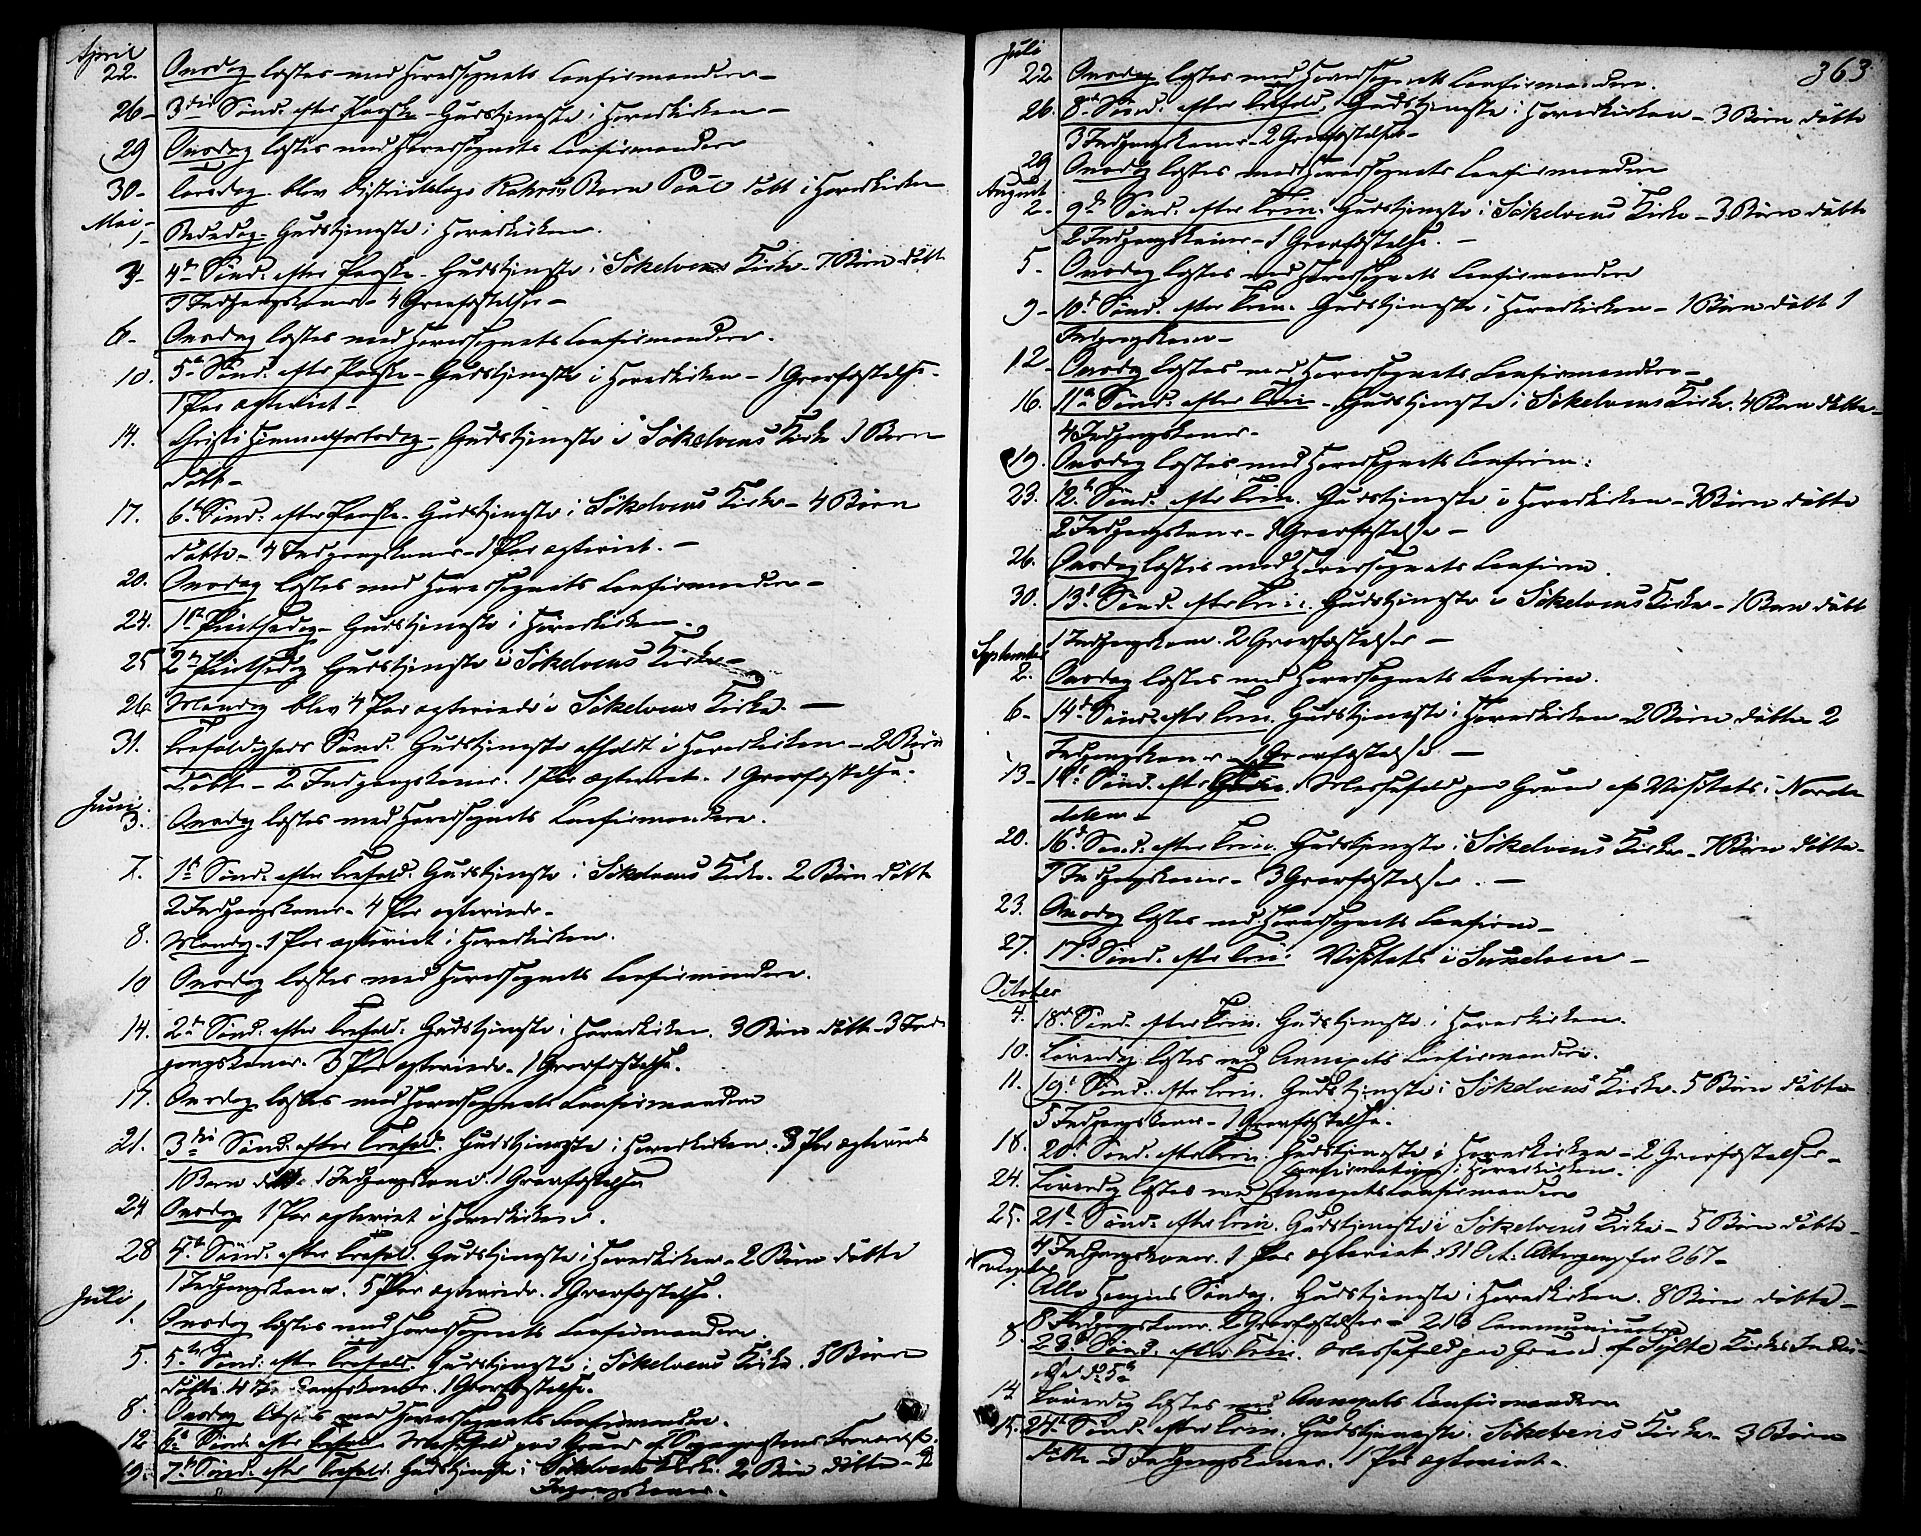 April
22. Onsdag læstes med Hovedsognets Confirmander -
26 - 3die Sønd. efter Paaske - Gudstjeneste i Hovedkirken -
29 Onsdag læstes med Hovedsognets Confirmander
30 - Torsdag blev Districtslæge Barn døbt i Hovedkirken
Mai -
1 - Bededag - Gudstjeneste i Hovedkirken.
3 - 4de Sønd. efter Paaske - Gudstjeneste i Søkelvens Kirke - 7 Børn døbt
7 Indgangskoner - 4 Gravfæstelser -
6 - Onsdag læstes med Hovedsognets Confirmander.
10. 5te Sønd. efter Paaske - Gudstjeneste i Hovedkirken - 1 Gravfæstelse.
1 Par ægteviet -
14. Christi Himmelfartsdag - Gudstjeneste i Søkelvens Kirke 1 Barn
døbt -
17. 6te Sønd. efter Paaske. Gudstjeneste i Søkelvens Kirke - 4 Børn
døbte - 4 Indgangskoner - 1 Par ægteviet. -
20. Onsdag læstes med Hovedsognets Confirmander -
24. 1ste Pintsedag - Gudstjeneste i Hovedkirken.
25 2den Pintsedag Gudstjeneste i Søkelvens Kirke -
26 Mandag blev 4 Par ægteviede i Søkelvens Kirke. -
31. Trefoldigheds Sønd. Gudstjeneste afholdt i Hovedkirken - 2 Børn
døbt - 2 Indgangskoner. 1 Par ægteviet. 1 Gravfæstelse.
Juni
3. Onsdag læstes med Hovedsognets Confirmander.
7. 1ste Sønd. efter Trefold. Gudstjeneste i Søkelvens Kirke. 2 Børn døbt
2 Indgangskoner - 4 Par ægteviede -
8. Mandag - 1 Par ægteviet i Hovedkirken.
10 Onsdag læstes med Hovedsognets Confirmander.
14. 2den Sønd. efter Trefold. Gudstjeneste i Hovedkirken. 3 Børn døbt - 3 Ind-
gangskoner. 3 Par ægteviede - 1 Gravfæstelse.
17. Onsdag læstes med Hovedsognets Confirmander
21. 3die Sønd. efter Trefold. Gudstjeneste i Hovedkirken. 3 Par ægteviede
1 Barn døbt 1 Indgangskone. 1 Gravfæstelse
24 Onsdag 1 Par ægteviet i Hovedkirken.
28 4de Sønd. efter Trefold. Gudstjeneste i Hovedkirken - 2 Børn døbte
1 Indgangskone. 5 Par ægteviede. 1 Gravfæstelse.
Juli
1. Onsdag læstes med Hovedsognets Confirmander.
5. 5te Sønd. efter Trefold. Gudstjeneste i Søkelvens Kirke. 5 Børn
døbte 4 Indgangskoner. 1 Gravfæstelse.
8. Onsdag læstes med Hovedsognets Confirmander.
12 6te Sønd. efter Trefold. Messefald paa Grund af Sognepræstens
19. 7de Sønd. efter Trefold. Gudstjeneste i Søkelvens Kirke. 2 Børn døbte - 2
Indgangskoner. -
363
Juli
22 Onsdag læstes med Hovedsognets Confirmander.
26. 8de Sønd. efter Trefold. Gudstjeneste i Hovedkirken - 3 Børn døbte
3 Indgangskoner - 2 Gravfæstelser -
29 Onsdag læstes med Hovedsognets Confirmander
August
2. 9de Sønd. efter Trin. Gudstjeneste i Søkelvens Kirke - 3 Børn døbte
2 Indgangskoner - 1 Gravfæstelse. -
5 - Onsdag læstes med Hovedsognets Confirmander
9 - 10de Sønd. efter Trin. Gudstjeneste i Hovedkirken - 1 Barn døbt 1
Indgangskone -
12 - Onsdag læstes med Hovedsognets Confirmander -
16. 11te Sønd. efter Trin - Gudstjeneste i Søkelvens Kirke. 4 Børn døbte -
4 Indgangskoner -
19. Onsdag læstes med Hovedsognets Confirm:
23. 12te Sønd. efter Trin. Gudstjeneste i Hovedkirken - 3 Børn døbte
2 Indgangskoner - 1 Gravfæstelse -
26. Onsdag læstes med Hovedsognets Confirm.
30. 13de Sønd. efter Trin. Gudstjeneste i Søkelvens Kirke - 1 Barn døbt
1 Indgangskone. 2 Gravfæstelser -
September
2. Onsdag læstes med Hovedsognets Confirm.
6 - 14de Sønd. efter Trin. Gudstjeneste i Hovedkirken - 2 Børn døbte 2
Indgangskoner - 1 Gravfæstelse -
13 - 15de Sønd. efter Trin. Messefald paa Grund af Visitats i Norddalen -
20. 16de Sønd. efter Trin. Gudstjeneste i Søkelvens Kirke - 7 Børn døbte -
7 Indgangskoner - 3 Gravfæstelser. -
23. Onsdag læstes med Hovedsognets Confirm -
27. 17de Sønd. efter Trin. Visitats i Sunelven -
October
4. 18de Sønd. efter Trin. Gudstjeneste i Hovedkirken.
10. Løverdag læstes med Annexets Confirmander.
11. 19de Sønd. efter Trin. Gudstjeneste i Søkelvens Kirke. 5 Børn døbte
5 Indgangskoner - 1 Gravfæstelse.
18. 20de Sønd. efter Trin. Gudstjeneste i Hovedkirken - 2 Gravfæstelser -
Confirmation i Hovedkirken.
24. Løverdag læstes med Annexets Confirmander
25. 21de Sønd. efter Trin. Gudstjeneste i Søkelvens Kirke - 5 Børn døbte -
4 Indgangskoner. 1 Par ægteviet. 31 Oct. 267 -
November
1. Alle Helgens Søndag. Gudstjeneste i Hovedkirken. 8 Børn døbte -
8 Indgangskoner. 2 Gravfæstelser - Communicanter
8. 23de Sønd. efter Trin. Messefald paa Grund af Sylte Kirkes Indvi-
else
14. Løverdag læstes med Annexets Confirmander
15. 24de Sønd. efter Trin. Gudstjeneste i Søkelvens Kirke - 3 Børn
døbte - 3 Indgangskoner. 1 Par ægteviet -